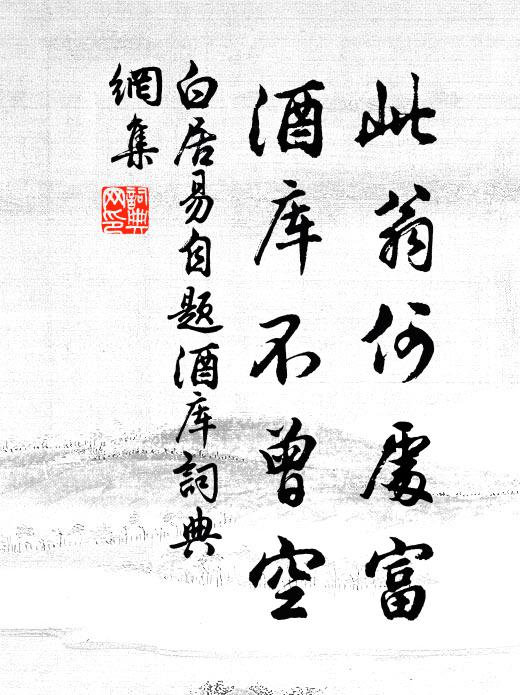 此翁何處富
酒库不曾空
白居易自题酒库詞典
網集
詞典
网印